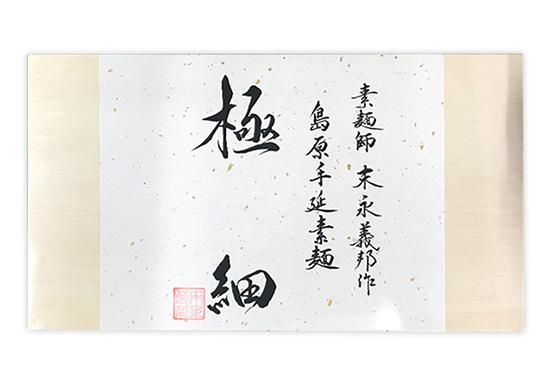 素麺師 末永義邦作
島原手延素麺
極細